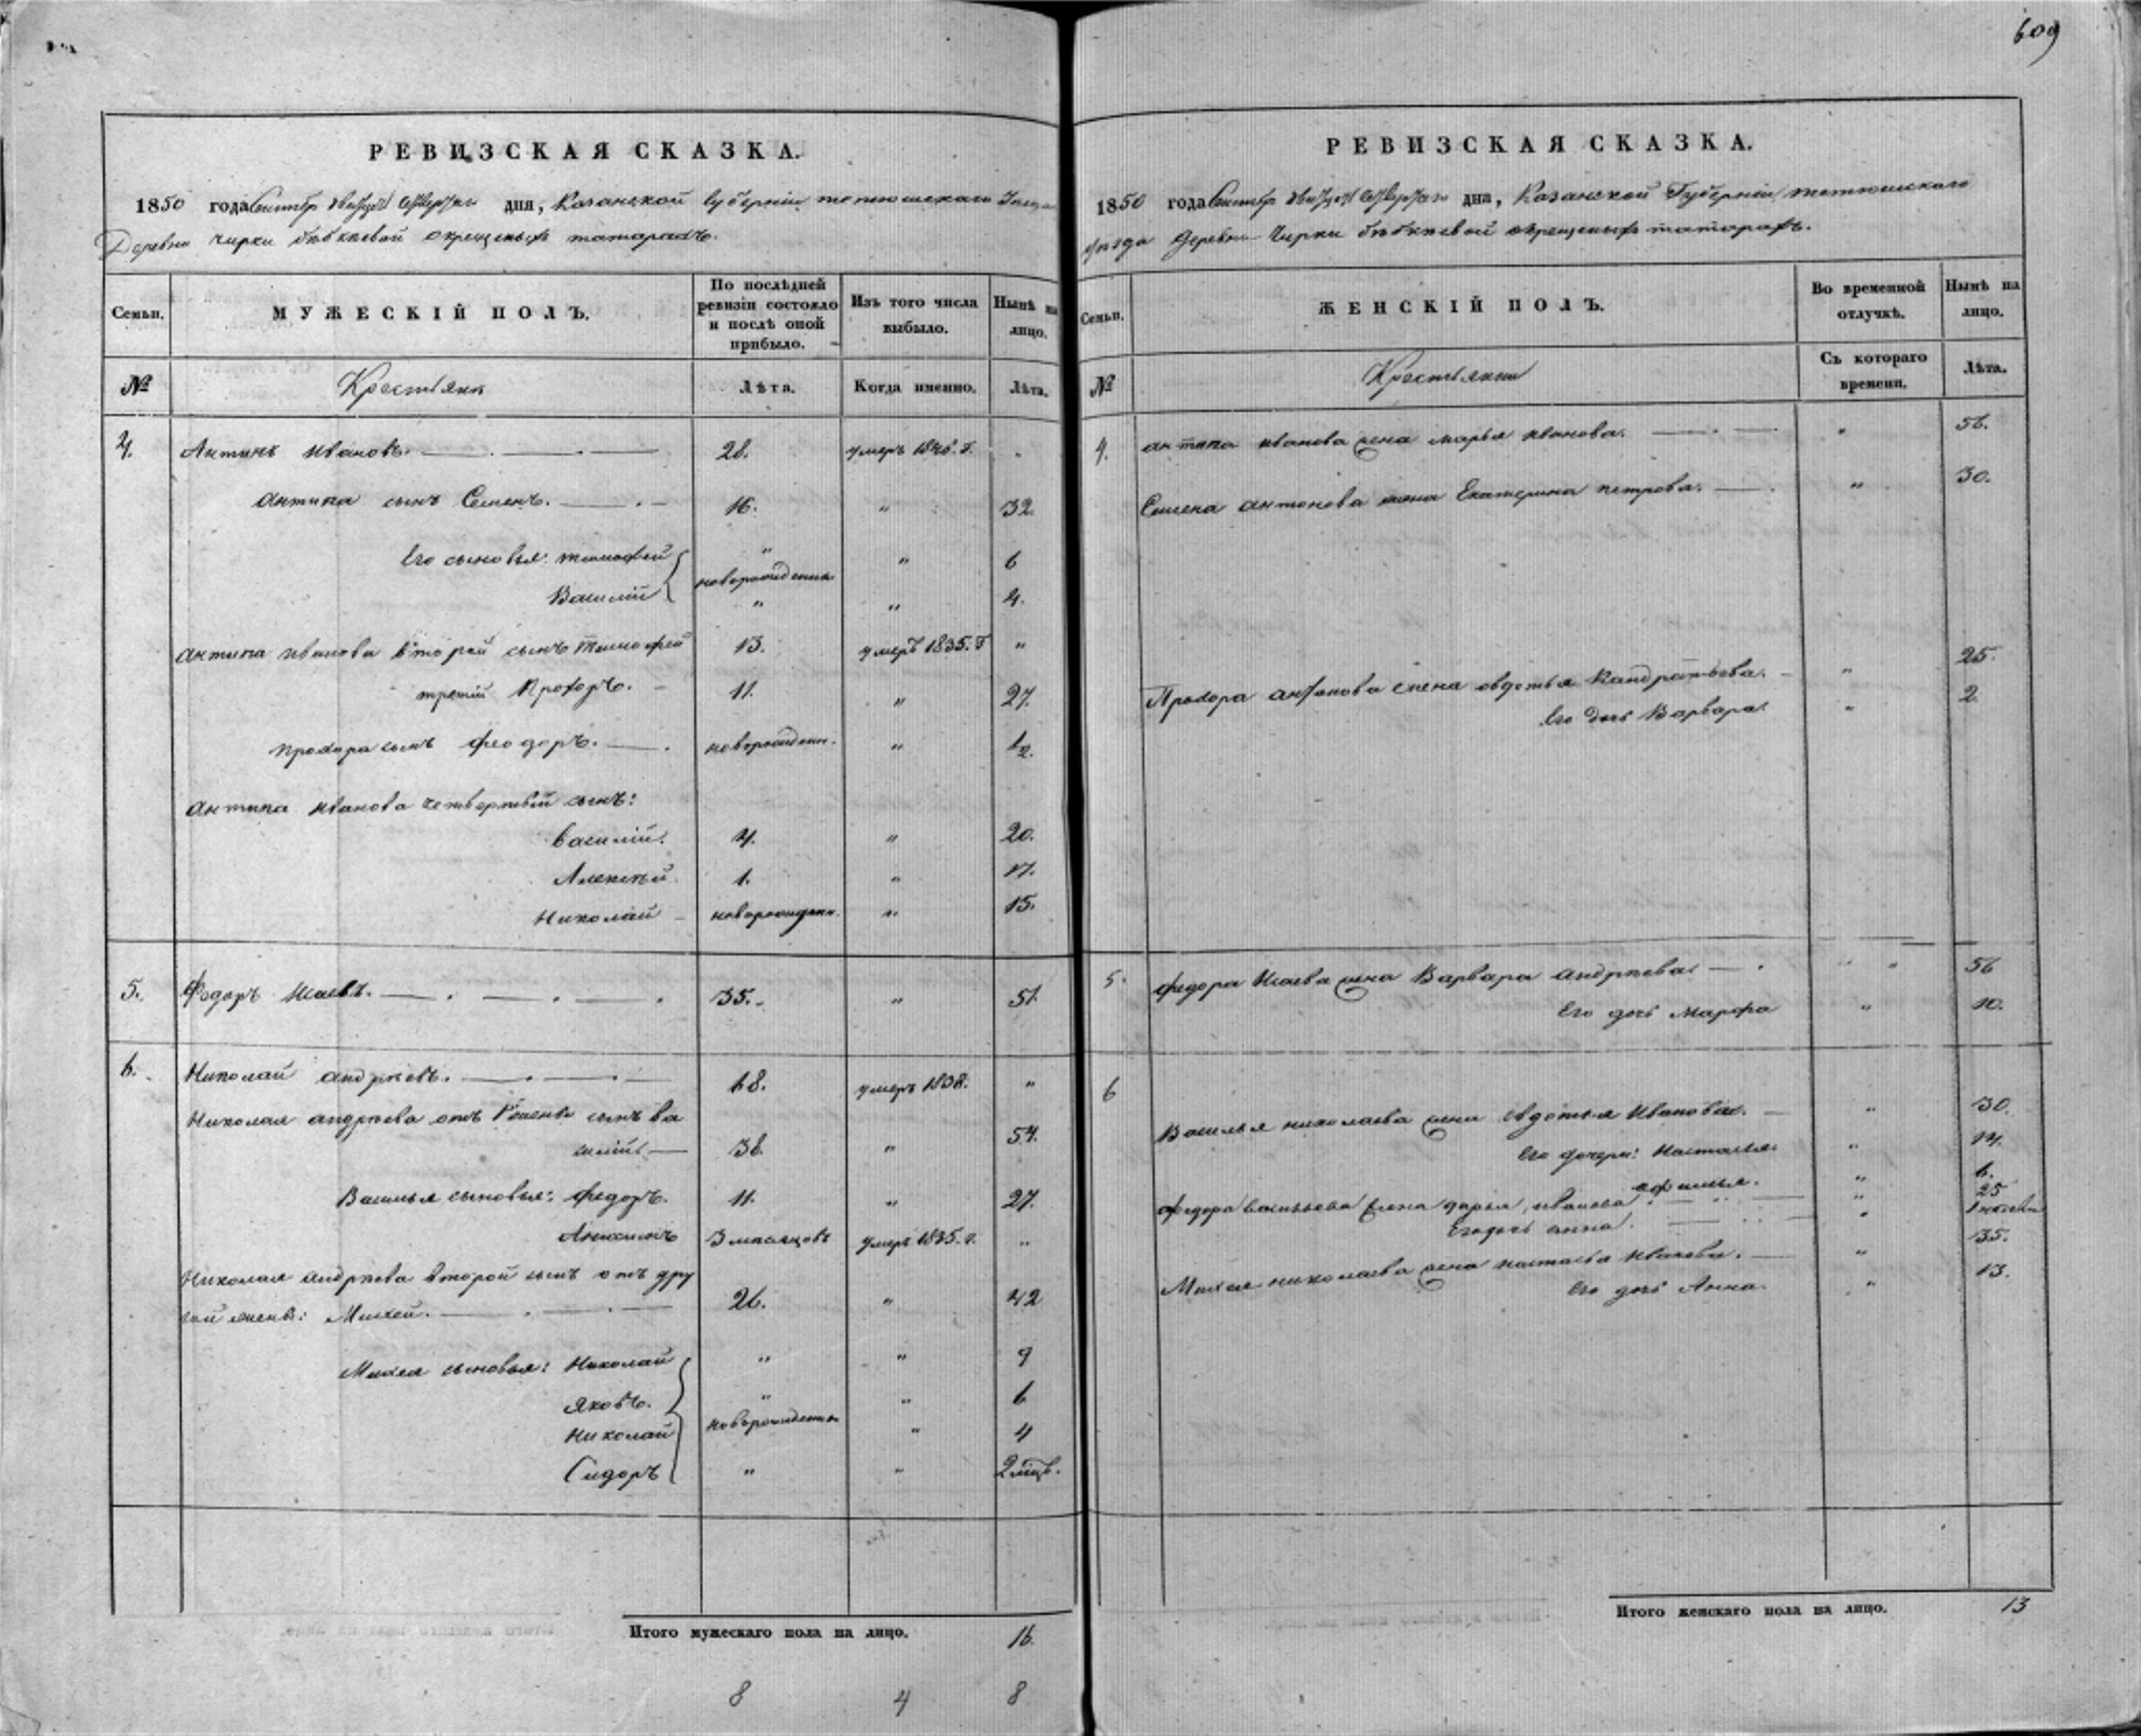 609
РЕВИЗСКАЯ СКАЗКА.
1850 года Сентября дня, Казанской Губерніи тетюшскаго
Деревни Чирки крещеныхъ татаръ.
Семьи.
МУЖЕСКІЙ ПОЛЪ.
По послѣдней
ревизіи состояло
и послѣ оной
прибыло.
Изъ того числа
выбыло.
Нынѣ на
лицо.
№
Крестьяне
Лѣта.
Когда именно.
Лѣта.
4. Антипъ Ивановъ. 28. умеръ 1846. г.
Антипа сынъ Семенъ. 16. " 32.
Его сыновья: тимофей " " 6
новорожденн.
Василій " " 4.
Антипа Иванова второй сынъ Тимофей 13. умеръ 1835. г "
третій Прохоръ. 11. " 27.
Прохора сынъ Феодоръ. новорожденн. " 1/2.
Антипа Иванова четвертый сынъ:
Василій. 4. " 20.
Алексѣй. 1. " 17.
Николай новорожденн. " 15.
5. Федоръ Исаевъ. 35. " 51.
6. Николай андрѣевъ. 68. умеръ 1838. "
Николая андрѣева отъ сынъ Ва
силій 38. " 54.
Василья сыновья: Федоръ. 11. " 27.
3 мѣсяцовъ умеръ 1835. г. "
Николая андрѣева второй сынъ отъ дру
гой жены: Михей. 26. " 42
Михея сыновья: Николай " " 9
Яковъ. " " 6
новорожденны
Николай " 4
Сидоръ " " 2 мѣсц.
Итого мужескаго пола на лицо. 16.
8 4 8
РЕВИЗСКАЯ СКАЗКА.
1850 года Сентября дня, Казанской Губерніи тетюшскаго
уѣзда Деревни Чирки крещеныхъ татаръ.
Семьи.
ЖЕНСКІЙ ПОЛЪ.
Во временной
отлучкѣ.
Нынѣ на
лицо.
№
Крестьянки
Съ котораго
времени.
Лѣта.
4. Антипа Иванова жена марья Иванова. " 56.
Семена антонова жена Екатерина петрова. " 30.
Прохора антопова жена овдотья Кандратьева. " 25.
Его дочь Варвара. " 2.
5. Федора Исаева жена Варвара андрѣева. " " 56
Его дочь Марфа " 10.
6
Василья николаева жена овдотья Иванова. " 30.
Его дочери: Настасья. " 14.
афимья. " 6.
Федора Васильева жена дарья, иванова. " 25
Его дочь анна. "
Михея николаева жена настасья Иванова. " 35.
Его дочь Анна. " 13.
Итого женскаго пола на лицо. 13